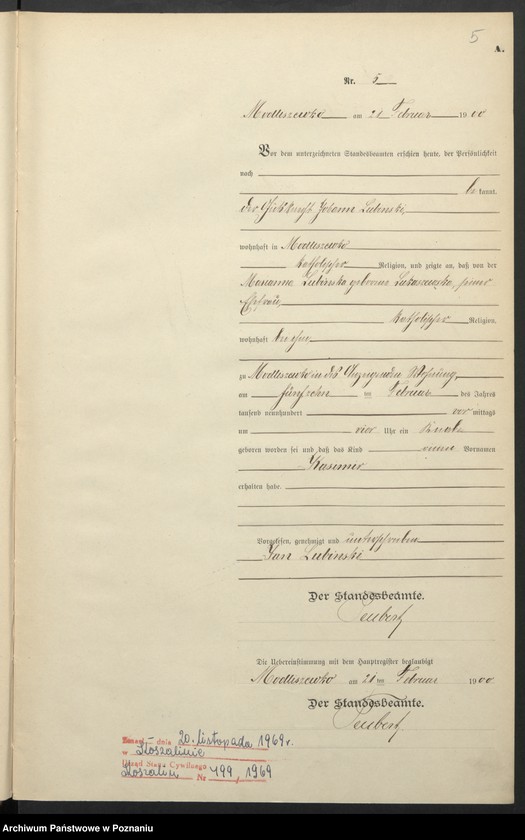 5
A.
Nr. 5
Modliszewko am 21 Februar 1900
Vor dem unterzeichneten Standesbeamten erschien heute, der Persönlichkeit
nach
be kannt,
der Johann Lubinski,
wohnhaft in Modliszewko
katholischer Religion, und zeigte an, daß von der
Marianna Lubinska geborene seiner
Ehefrau,
katholischer Religion,
wohnhaft bei ihm
zu Modliszewko in des Anzeigenden Wohnung,
am fünfzehn ten Februar des Jahres
tausend neunhundert vor mittags
um vier Uhr ein Knabe
geboren worden sei und daß das Kind einen Vornamen
Kasimir
erhalten habe.
Vorgelesen, genehmigt und unterschrieben
Jan Lubinski
Der Standesbeamte.
Die Uebereinstimmung mit dem Hauptregister beglaubigt
Modliszewko am 21 ten Februar 1900
Der Standesbeamte.
dnia 20. listopada 1969 r.
w Koszalinie
Urząd Stanu Cywilnego
Koszalin Nr 499/1969
Archiwum Państwowe w Poznaniu